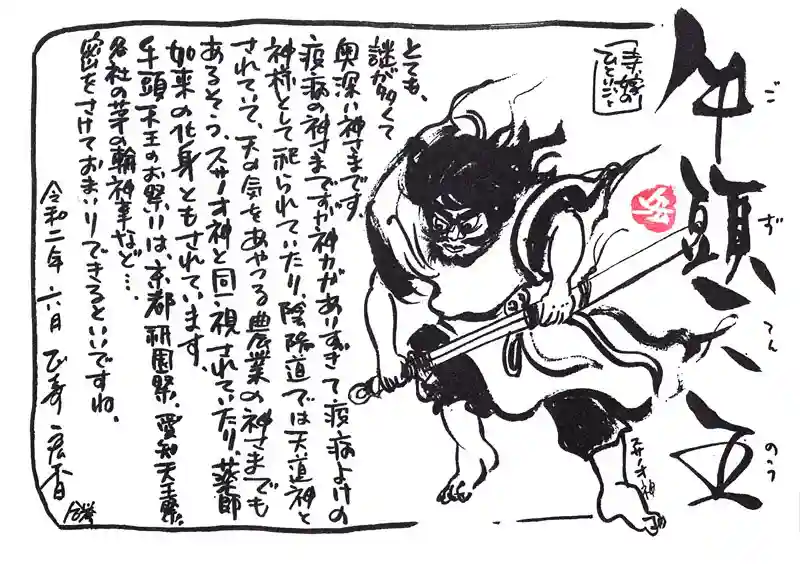 牛頭天王
ごずてんのう
「寺嫁の
ひといごと
とても、
謎が多くて
奥深い神さまです。
疫病の神さまですが神力がありすぎて疫病よけの
神様として祀られていたり、陰陽道では天道神と
されていて、天の気をあやつる農業の神さまでも
あるそう。スサノオ神と同一視されていたり、薬師
如来の化身ともされています。
牛頭天王のお祭りは、京都祇園祭、愛知天王祭、
各社の茅の輪神事など…。
密をさけておまいりできるといいですね。
令和二年 六月
スサノオ神